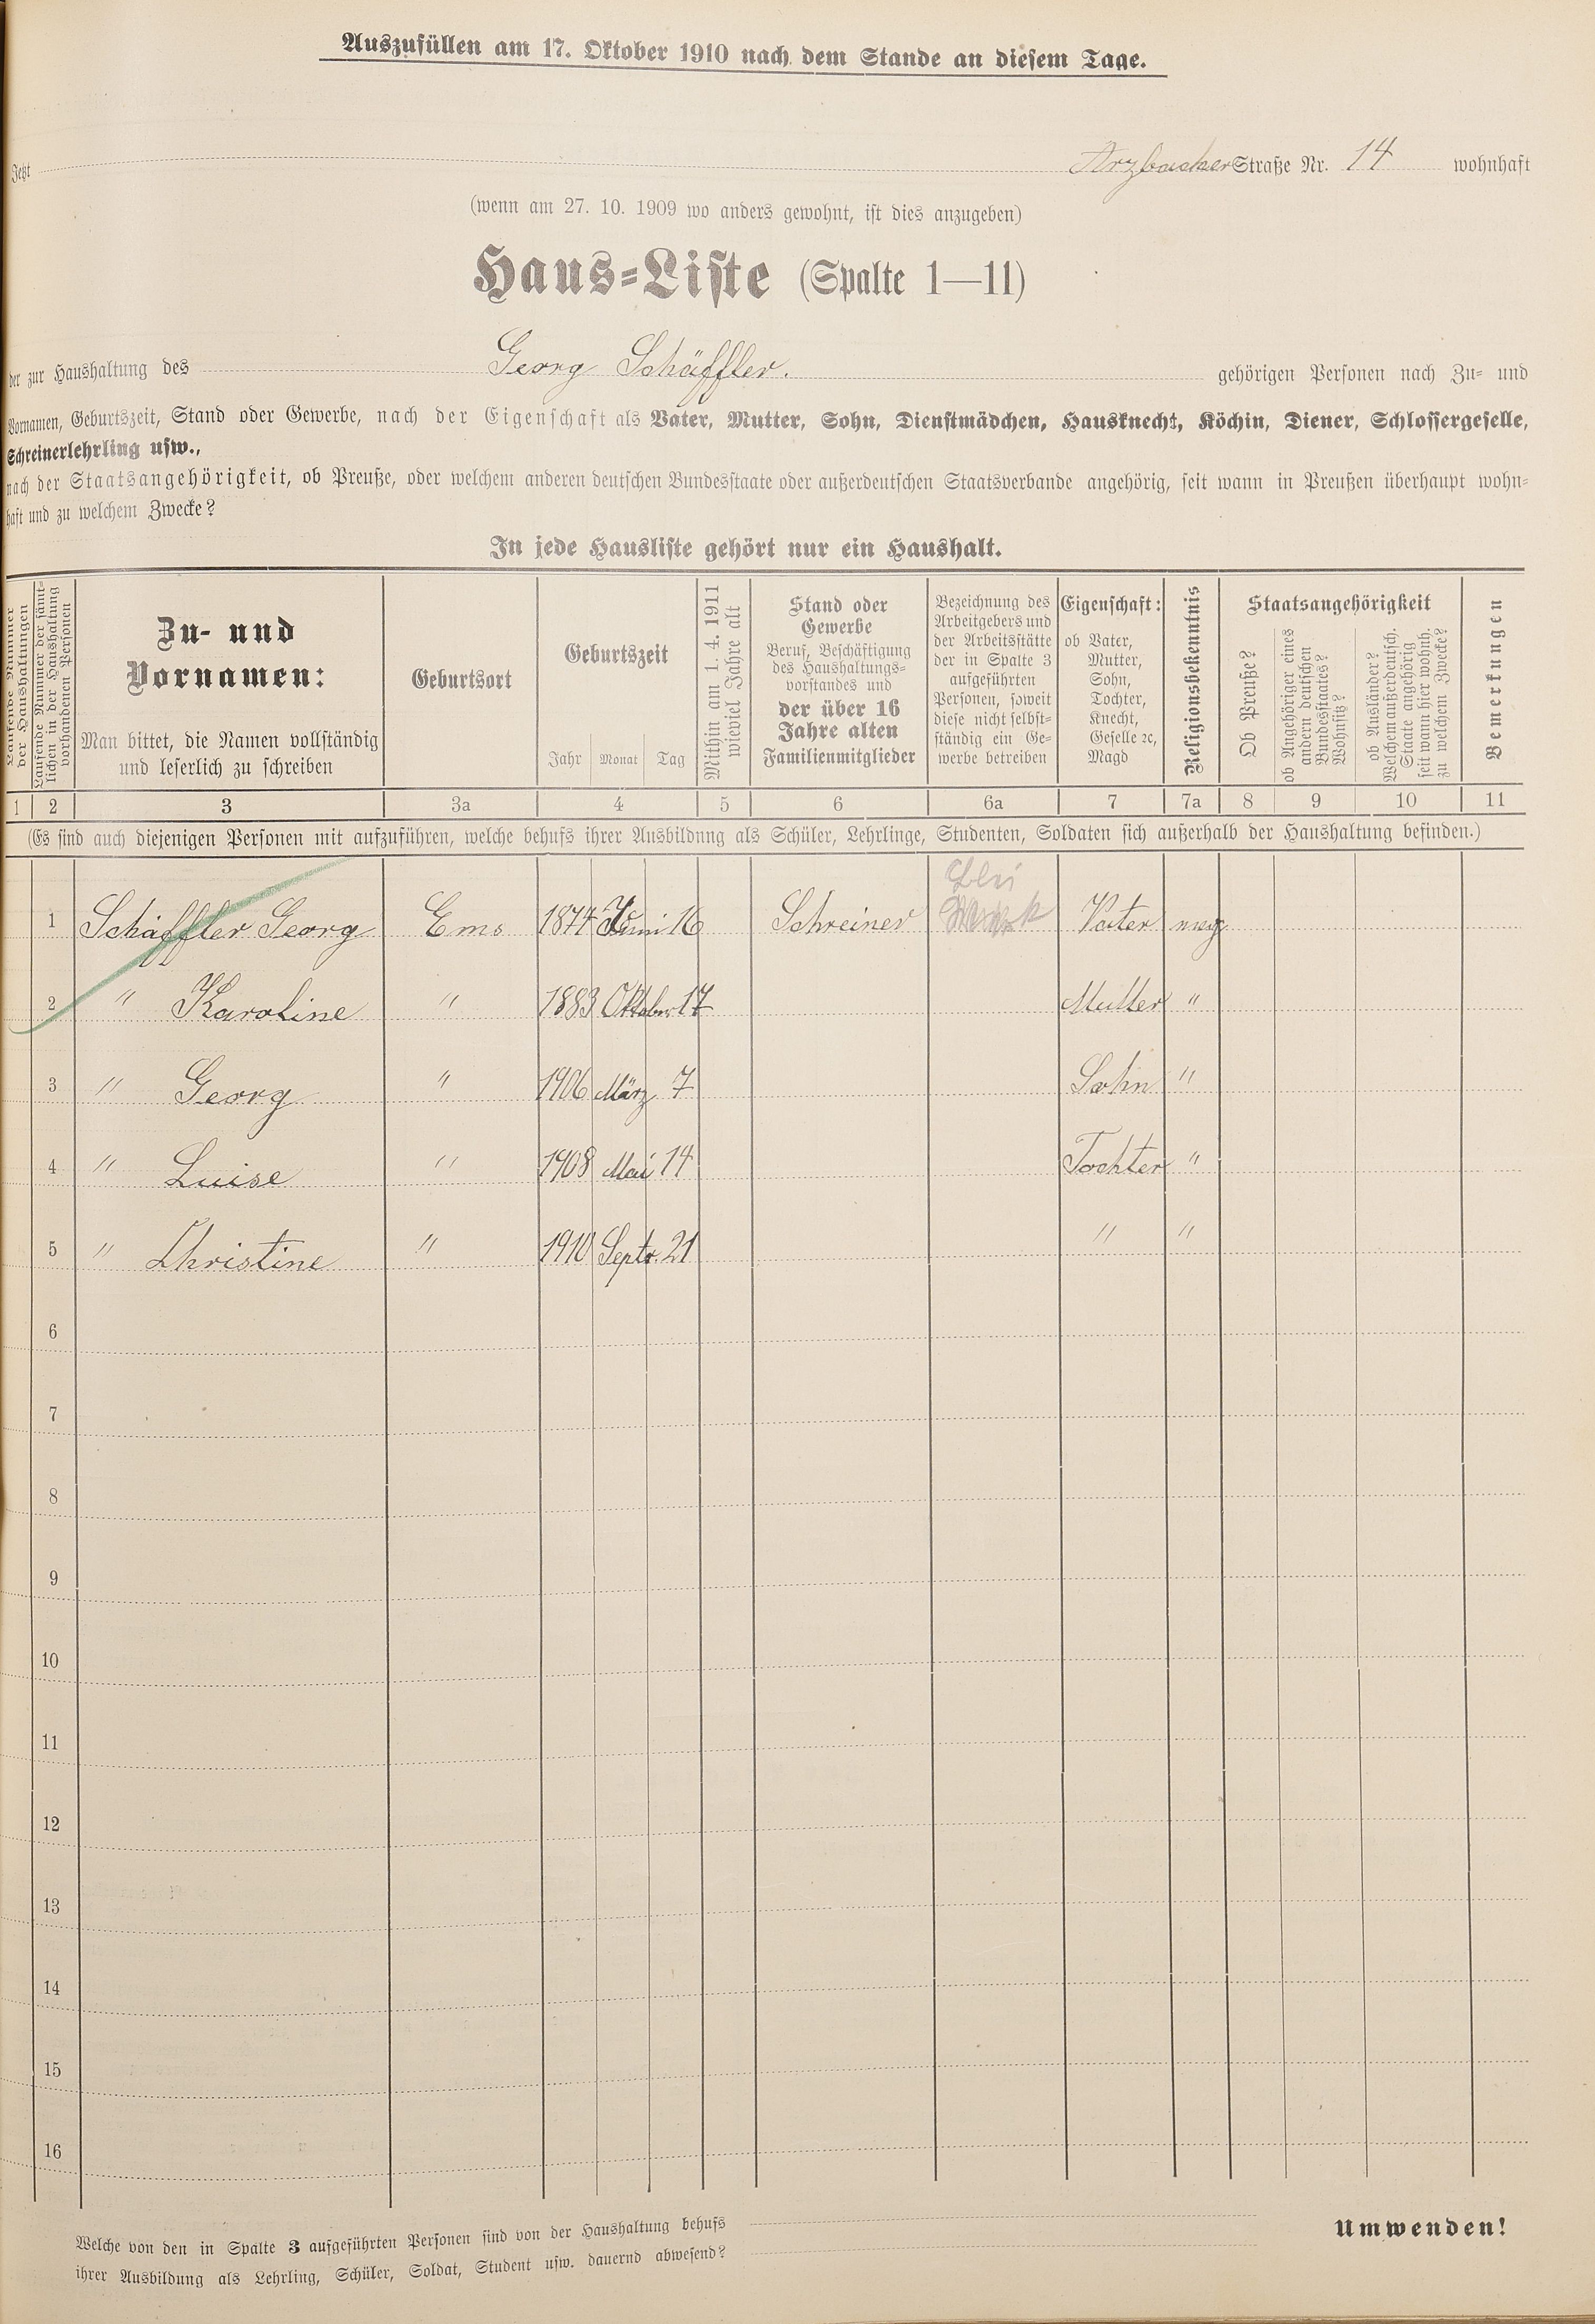 Auszufüllen am 17. Oktober 1910 nach dem Stande an diesem Tage.
Jetzt Arzbacher Straße Nr. 14 wohnhaft
(wenn am 27. 10. 1909 wo anders gewohnt, ist dies anzugeben)
Haus-Liste (Spalte 1—11)
der zur Haushaltung des Georg Schäffler. gehörigen Personen nach Zu- und
Vornamen, Geburtszeit, Stand oder Gewerbe, nach der Eigenschaft als Vater, Mutter, Sohn, Dienstmädchen, Hausknecht, Köchin, Diener, Schlossergeselle,
Schreinerlehrling usw.,
nach der Staatsangehörigkeit, ob Preuße, oder welchem anderen deutschen Bundesstaate oder außerdeutschen Staatsverbande angehörig, seit wann in Preußen überhaupt wohn-
haft und zu welchem Zwecke?
In jede Hausliste gehört nur ein Haushalt.
Laufende Nummer
der Haushaltungen
Laufende Nummer der sämt-
lichen in der Haushaltung
vorhandenen Personen
Zu- und
Vornamen:
Man bittet, die Namen vollständig
und leserlich zu schreiben
Geburtsort
Geburtszeit
Jahr Monat Tag
Mithin am 1. 4. 1911
wieviel Jahre alt
Stand oder
Gewerbe
Beruf, Beschäftigung
des Haushaltungs-
vorstandes und
der über 16
Jahre alten
Familienmitglieder
Bezeichnung des
Arbeitgebers und
der Arbeitsstätte
der in Spalte 3
aufgeführten
Personen, soweit
diese nicht selbst-
ständig ein Ge-
werbe betreiben
Eigenschaft:
ob Vater,
Mutter,
Sohn,
Tochter,
Knecht,
Geselle ꝛc,
Magd
Religionsbekenntnis
Staatsangehörigkeit
Ob Preuße?
ob Angehöriger eines
andern deutschen
Bundesstaates?
Wohnsitz?
ob Ausländer?
Welchem außerdeutsch.
Staate angehörig
seit wann hier wohnh.
zu welchem Zwecke?
Bemerkungen
1 2 3 3a 4 5 6 6a 7 7a 8 9 10 11
(Es sind auch diejenigen Personen mit aufzuführen, welche behufs ihrer Ausbildung als Schüler, Lehrlinge, Studenten, Soldaten sich außerhalb der Haushaltung befinden.)
1 Schäffler Georg Ems 1874 Juni 16 Schreiner Vater
2 " Karoline " 1883 Oktober 17 Mutter "
3 " Georg " 1906 März 7 Sohn "
4 " Luise " 1908 Mai 14 Tochter "
5 " Christine " 1910 Septr. 21 " "
6
7
8
9
10
11
12
13
14
15
16
Welche von den in Spalte 3 aufgeführten Personen sind von der Haushaltung behufs
ihrer Ausbildung als Lehrling, Schüler, Soldat, Student usw. dauernd abwesend?
Umwenden!